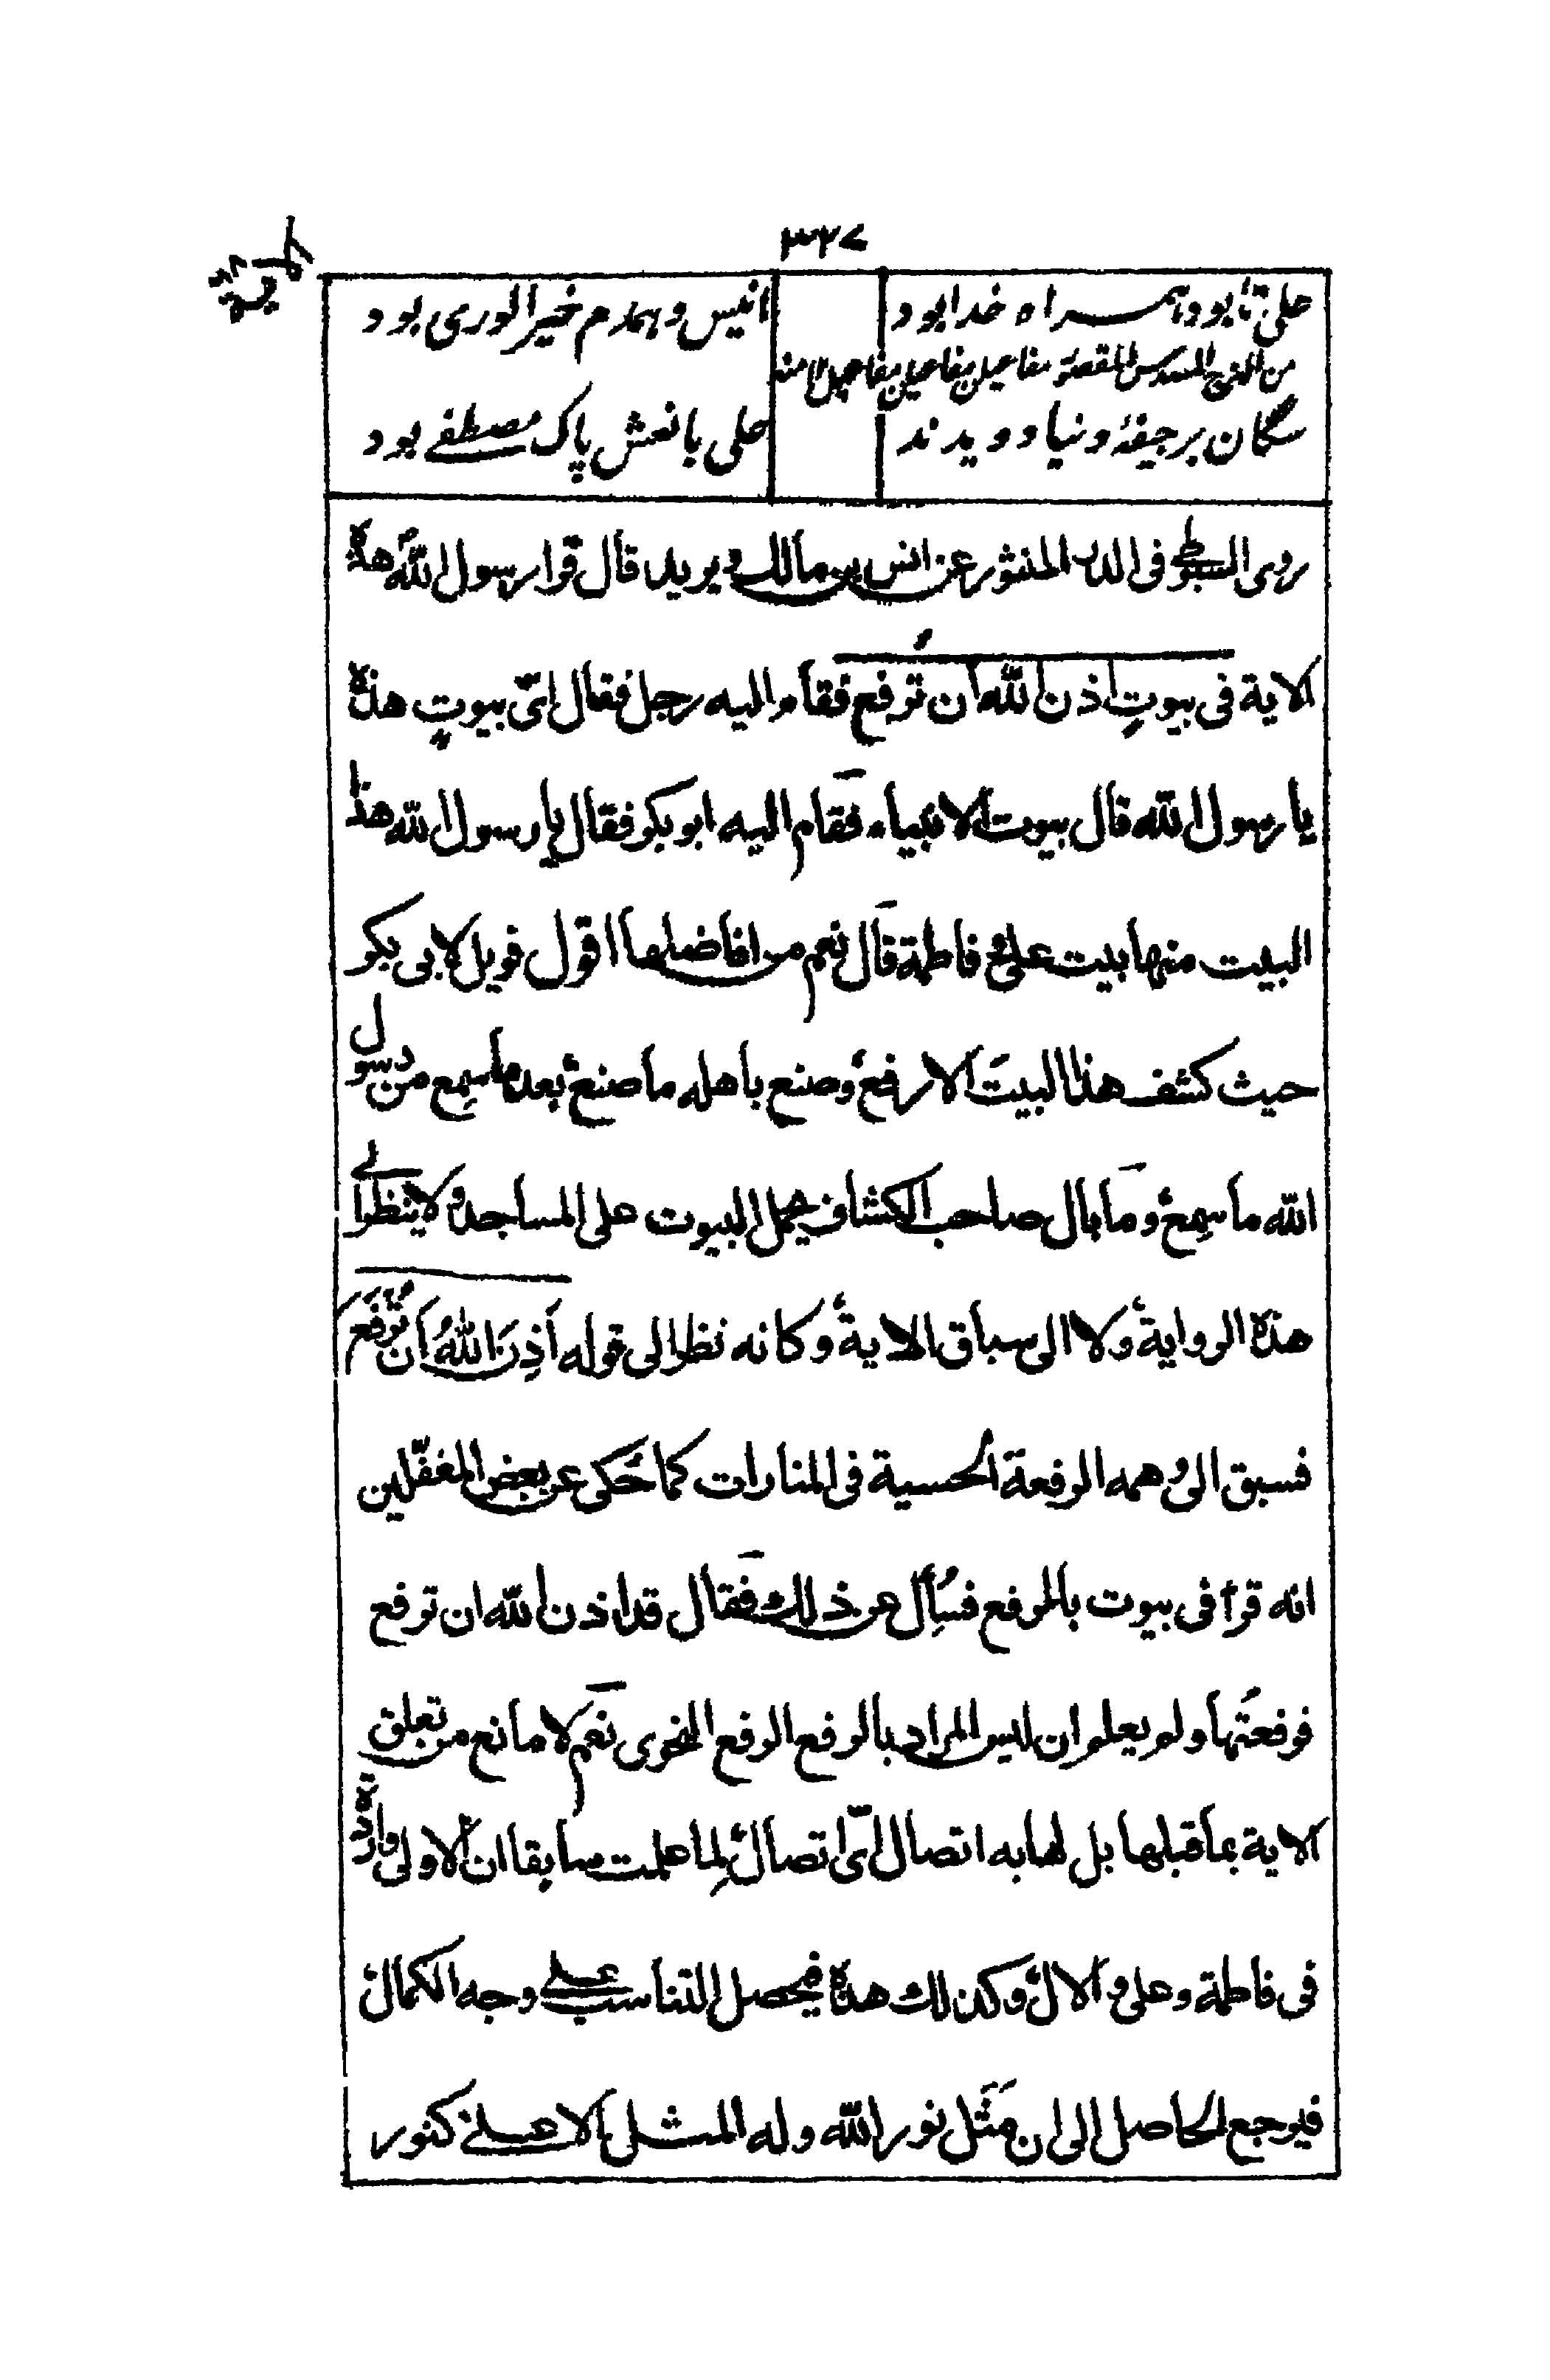 ٣٢٧
علی تا بود همراه خدا بود انیس و همدم خیر الوری بود
من الهزج المسدس المقصور مفاعیلن مفاعیلن مفاعیل ١٢ منه
سگان بر جیفهٔ دنیا دویدند علی با نعش پاک مصطفے بود
روى السيوطي في الدر المنثور عن انس بن مالك وبريدة قال قرأ رسول الله هذه
الاية في بيوتٍ اذن الله ان تُرفع فقام اليه رجل فقال اىّ بيوتٍ هذه
يا رسول الله قال بيوت الانبياء فقام اليه ابو بكر فقال يا رسول الله هذا
البيت منها بيت على و فاطمة قال نعم من افاضلها اقول فويل لابى بكر
حيث كشف هذا البيت الارفع وصنع باهله ما صنع بعد ما سمِع من رسول
الله ما سمِع وما بال صاحب الكشاف يحمل البيوت على المساجد ولا ينظر الى
هذه الرواية ولا الى سياق الاية وكانه نظر الى قوله اَذِنَ اللهُ اَن تُرفَع
فسبق الى وهمه الرفعة الحسية في المنارات كما حَكى عن بعض المغفّلين
انه قرأ في بيوت بالرفع فسُئِل عن ذلك فقال قد اذن الله ان ترفع
فرفعتُها ولم يعلم ان ليس المراد بالرفع الرفع النحوى نعم لا مانع من تعلق
الاية بما قبلها بل لها به اتصال اىّ اتصال لِما علمت سابقا ان الاولى واردة
في فاطمة وعلى والال وكذلك هذه فيحصل التناسب على وجه الكمال
فيرجع الحاصل الى ان مَثَل نور الله وله المثل الاعلى كنور